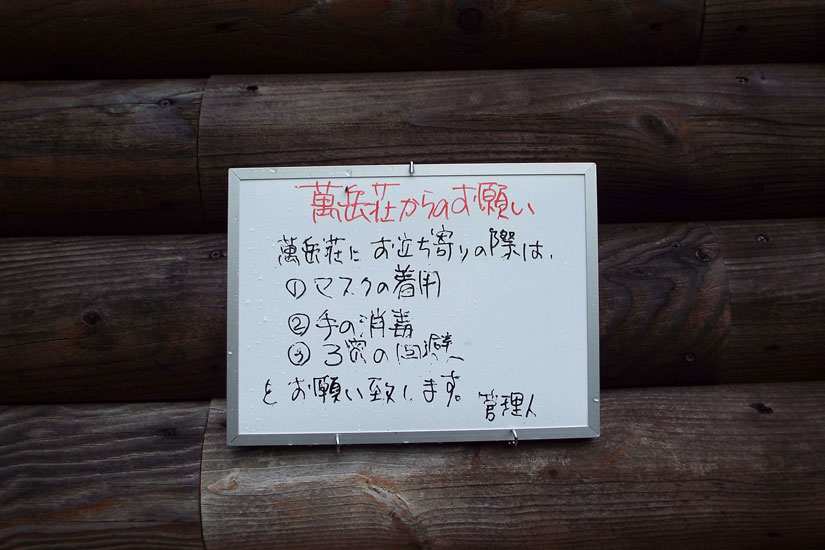 萬岳荘からのお願い
萬岳荘にお立ち寄りの際は、
①マスクの着用
②手の消毒
③3密の回避
をお願い致します。
管理人